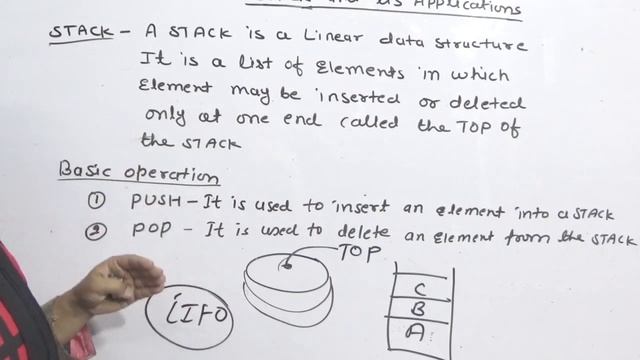 its Applications
STACK - A STACK is a Linear data structure
It is a list of Elements in which
Element may be inserted or deleted
only at one end called the TOP of
the STACK
Basic operation
① PUSH - It is used to insert an element into a STACK
② POP - It is used to delete an element from the STACK
TOP
LIFO
C
B
A